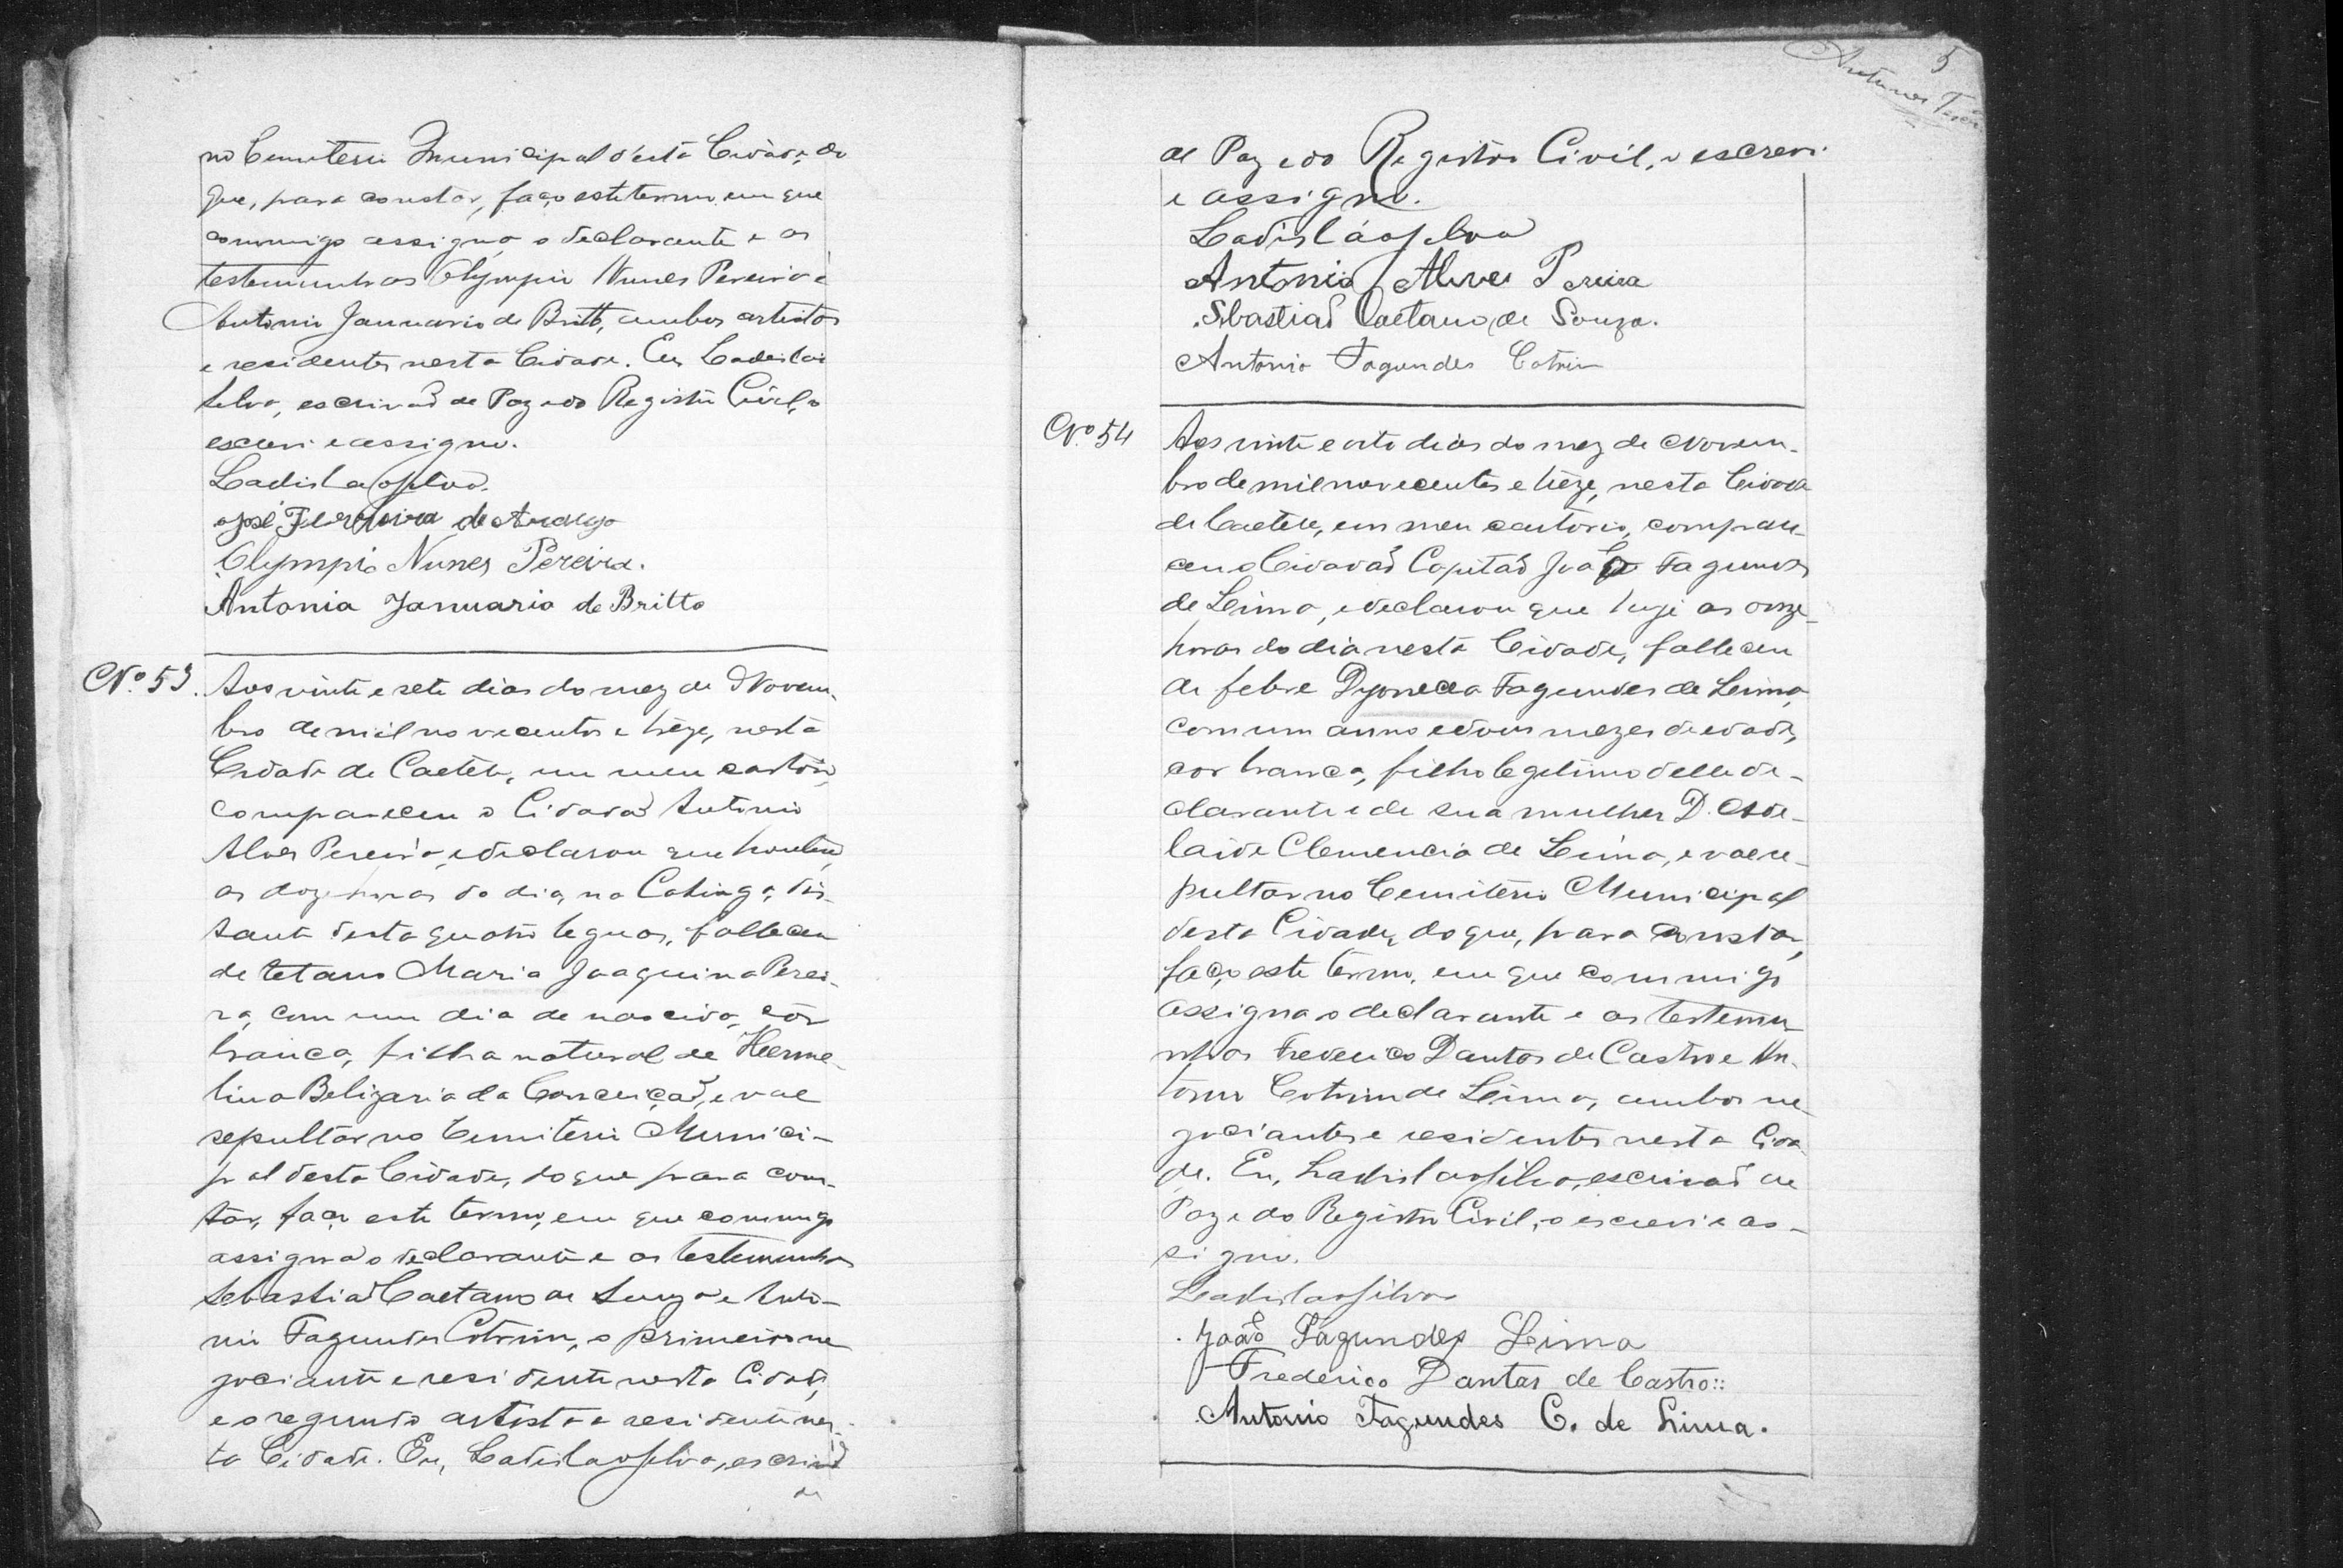 no Cemiterio Municipal d'esta Cidade, do
que, para constar, faço este termo em que
commigo assigna o declarante e as
testemunhas Olympio Nunes Pereira e
Antonio Januario de Britto, ambos artistas
e residentes nesta Cidade. Eu Ladislau
Silva, escrivaõ de Paz e do Registro Civil, o
escrevi e assigno.
Ladislao Silva.
José Ferreira de Araujo
Olympio Nunes Pereira.
Antonio Januario de Britto
Nº 53. Aos vinte e sete dias do mez de Novem-
bro de mil novecentos e treze, nesta
Cidade de Caeteté, em meu cartorio,
compareceu o Cidadaõ Antonio
Alves Pereira, e declarou que hontem,
as doze horas do dia, na Catinga, dis-
tante desta quatro leguas, falleceu
de tetano Maria Joaquina Perei-
ra, com um dia de nascida, côr
branca, filha natural de Herme-
lina Belizaria da Conceiçaõ, e vae
sepultar no Cemiterio Munici-
pal desta Cidade, do que para cons-
tar, faço este termo, em que commigo
assigna o declarante e as testemunhas
Sebastiaõ Caetano de Souza e Anto-
nio Fagundes Cotrim, o primeiro ne
gociante e residente nesta Cidade,
e o segundo artista e residente nes-
ta Cidade. Eu, Ladislao Silva, escrivaõ
de
5
Antunes
de Paz e do Registro Civil, o escrevi
e assigno.
Ladisláo Silva
Antonio Alves Pereira
Sbastiaõ Caetano de Souza.
Antonio Fagundes Cotrim
Nº 54 Aos vinte e oito dias do mez de Novem-
bro de mil novecentos e treze, nesta Cidade
de Caeteté, em meu cartorio, compare-
ceu o Cidadaõ Capitaõ Joaõ Fagundes
de Lima, e declarou que hoje as onze
horas do dia nesta Cidade, falleceu
de febre Fagundes de Lima,
com um anno e dous mezes de edade,
cor branca, filho legitimo delle de-
clarante e de sua mulher D. Ade-
laide Clemencia de Lima, e vae se-
pultar no Cemiterio Municipal
desta Cidade, do que, para constar,
faço este termo, em que commigo
assigna o declarante e as testemu-
nhas Frederico Dantas de Castro e An-
tonio Cotrim de Lima, ambos ne-
gociantes e residentes nesta Cida-
de. Eu, Ladislao Silva, escrivaõ de
Paz e do Registro Civil, o escrevi e as-
signo.
Ladislao Silva
Joaõ Fagundes Lima
Frederico Dantas de Castro::
Antonio Fagundes C. de Lima.